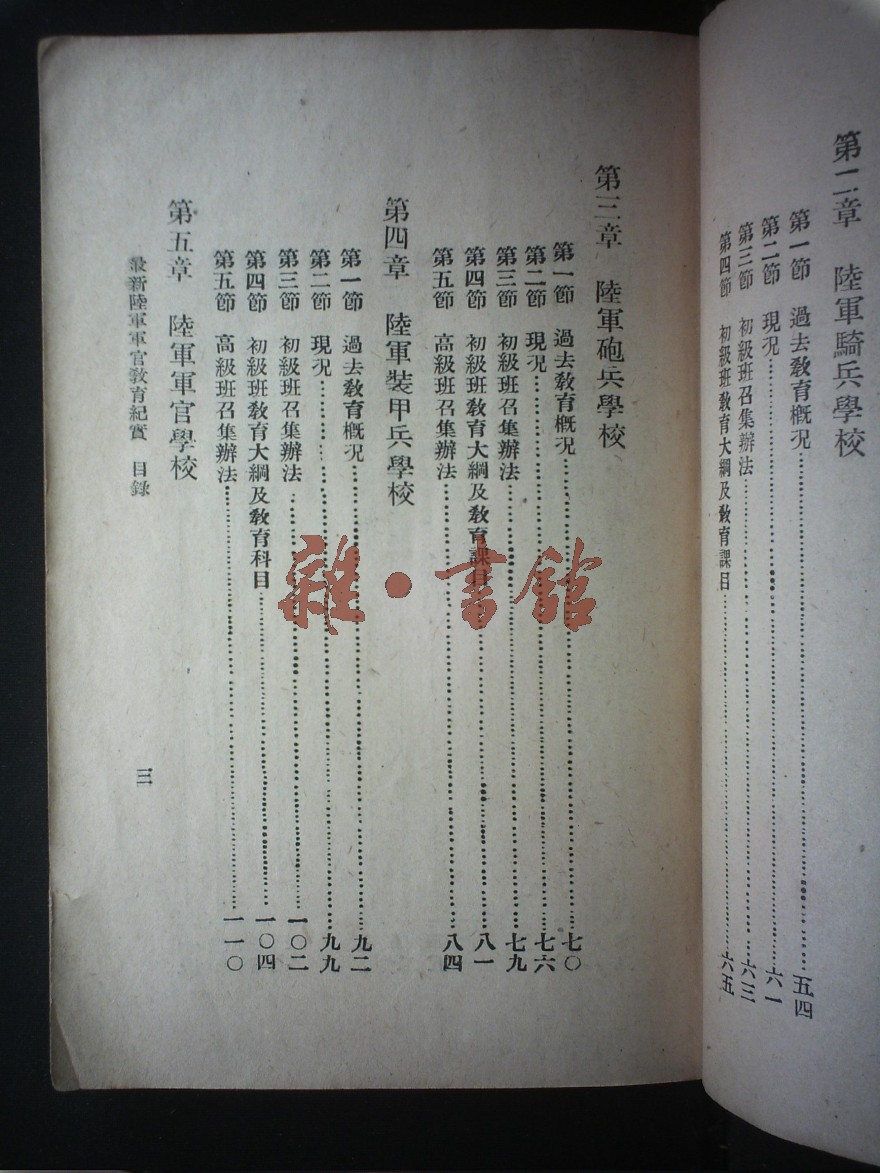 第二章　陸軍騎兵學校
第一節　過去教育概况……五四
第二節　現况……六一
第三節　初級班召集辦法……六三
第四節　初級班教育大綱及教育課目……六五
第三章　陸軍砲兵學校
第一節　過去教育概况……七〇
第二節　現况……七六
第三節　初級班召集辦法……七九
第四節　初級班教育大綱及教育課目……八一
第五節　高級班召集辦法……八四
第四章　陸軍裝甲兵學校
第一節　過去教育概况……九二
第二節　現况……九九
第三節　初級班召集辦法……一〇二
第四節　初級班教育大綱及教育科目……一〇四
第五節　高級班召集辦法……一一〇
第五章　陸軍軍官學校
最新陸軍軍官教育紀實　目錄
三
雜·書館